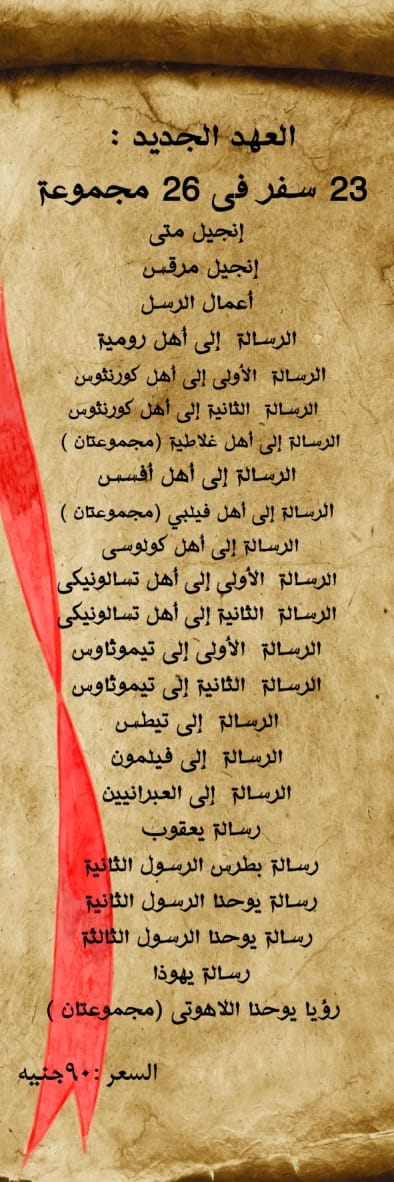 العهد الجديد :
23 سفر فى 26 مجموعة
إنجيل متى
إنجيل مرقس
أعمال الرسل
الرسالة إلى أهل رومية
الرسالة الأولى إلى أهل كورنثوس
الرسالة الثانية إلى أهل كورنثوس
الرسالة إلى أهل غلاطية (مجموعتان )
الرسالة إلى أهل أفسس
الرسالة إلى أهل فيلبي (مجموعتان )
الرسالة إلى أهل كولوسى
الرسالة الأولى إلى أهل تسالونيكى
الرسالة الثانية إلى أهل تسالونيكى
الرسالة الأولى إلى تيموثاوس
الرسالة الثانية إلى تيموثاوس
الرسالة إلى تيطس
الرسالة إلى فيلمون
الرسالة إلى العبرانيين
رسالة يعقوب
رسالة بطرس الرسول الثانية
رسالة يوحنا الرسول الثانية
رسالة يوحنا الرسول الثالثة
رسالة يهوذا
رؤيا يوحنا اللاهوتى (مجموعتان )
السعر :٩٠جنيه